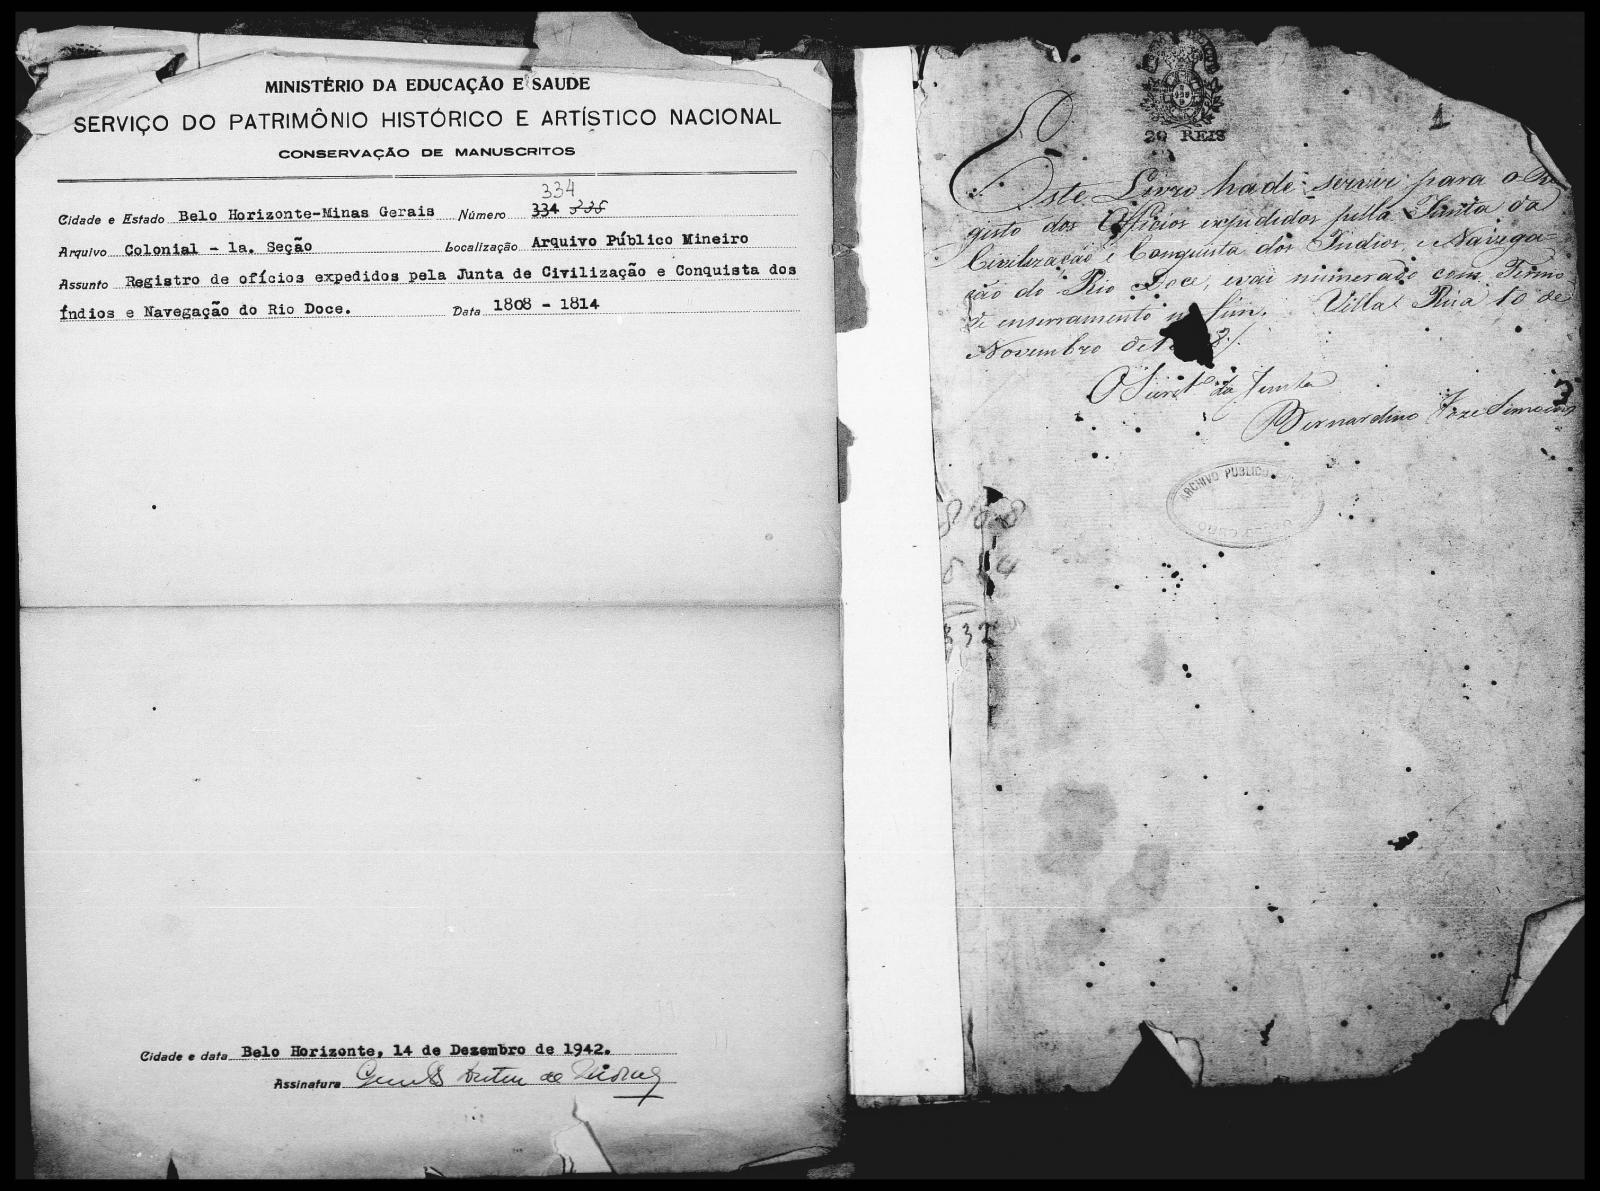 MINISTÉRIO DA EDUCAÇÃO E SAUDE
SERVIÇO DO PATRIMÔNIO HISTÓRICO E ARTÍSTICO NACIONAL
CONSERVAÇÃO DE MANUSCRITOS
334
Cidade e Estado Belo Horizonte-Minas Gerais Número 334 335
Arquivo Colonial - 1a. Seção Localização Arquivo Público Mineiro
Assunto Registro de ofícios expedidos pela Junta de Civilização e Conquista dos
Índios e Navegação do Rio Doce. Data 1808 - 1814
Cidade e data Belo Horizonte, 14 de Dezembro de 1942.
Assinatura
20 REIS
1
Este Livro hade servir para o Re
gisto dos Officios expedidos pella Junta da
Civilização e Conquista dos Indios, e Navega=
ção do Rio Doce, e vai numerado com Termo
de enserramento no fim. Villa Rica 10 de
Novembro de
O Secret.º da Junta
Bernardino Joze
3
ARCHIVO PUBLICO
OURO PRETO
332